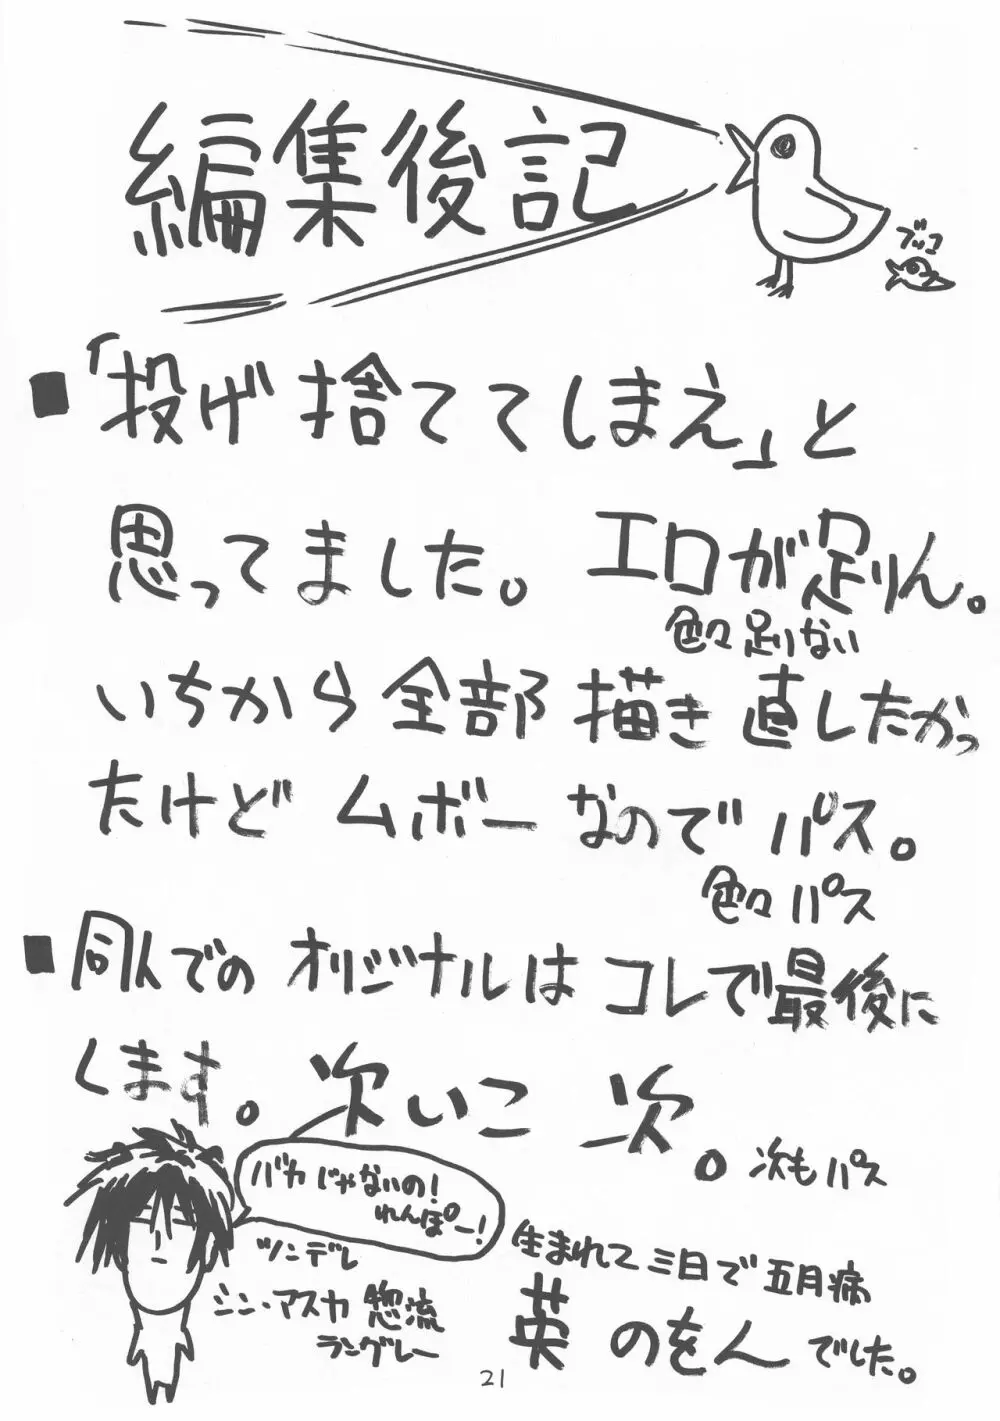 編集後記
ブッコ
■「投げ捨ててしまえ」と
思ってました。エロが足りん。
色々足りない
いちから全部描き直したかっ
たけどムボーなのでパス。
色々パス
■同人でのオリジナルはコレで最後に
します。次いこ次。
次もパス
バカじゃないの!
れんぽー!
ツンデレ
シン・アスカ惣流
ラングレー
生まれて三日で五月病
英のをんでした。
21